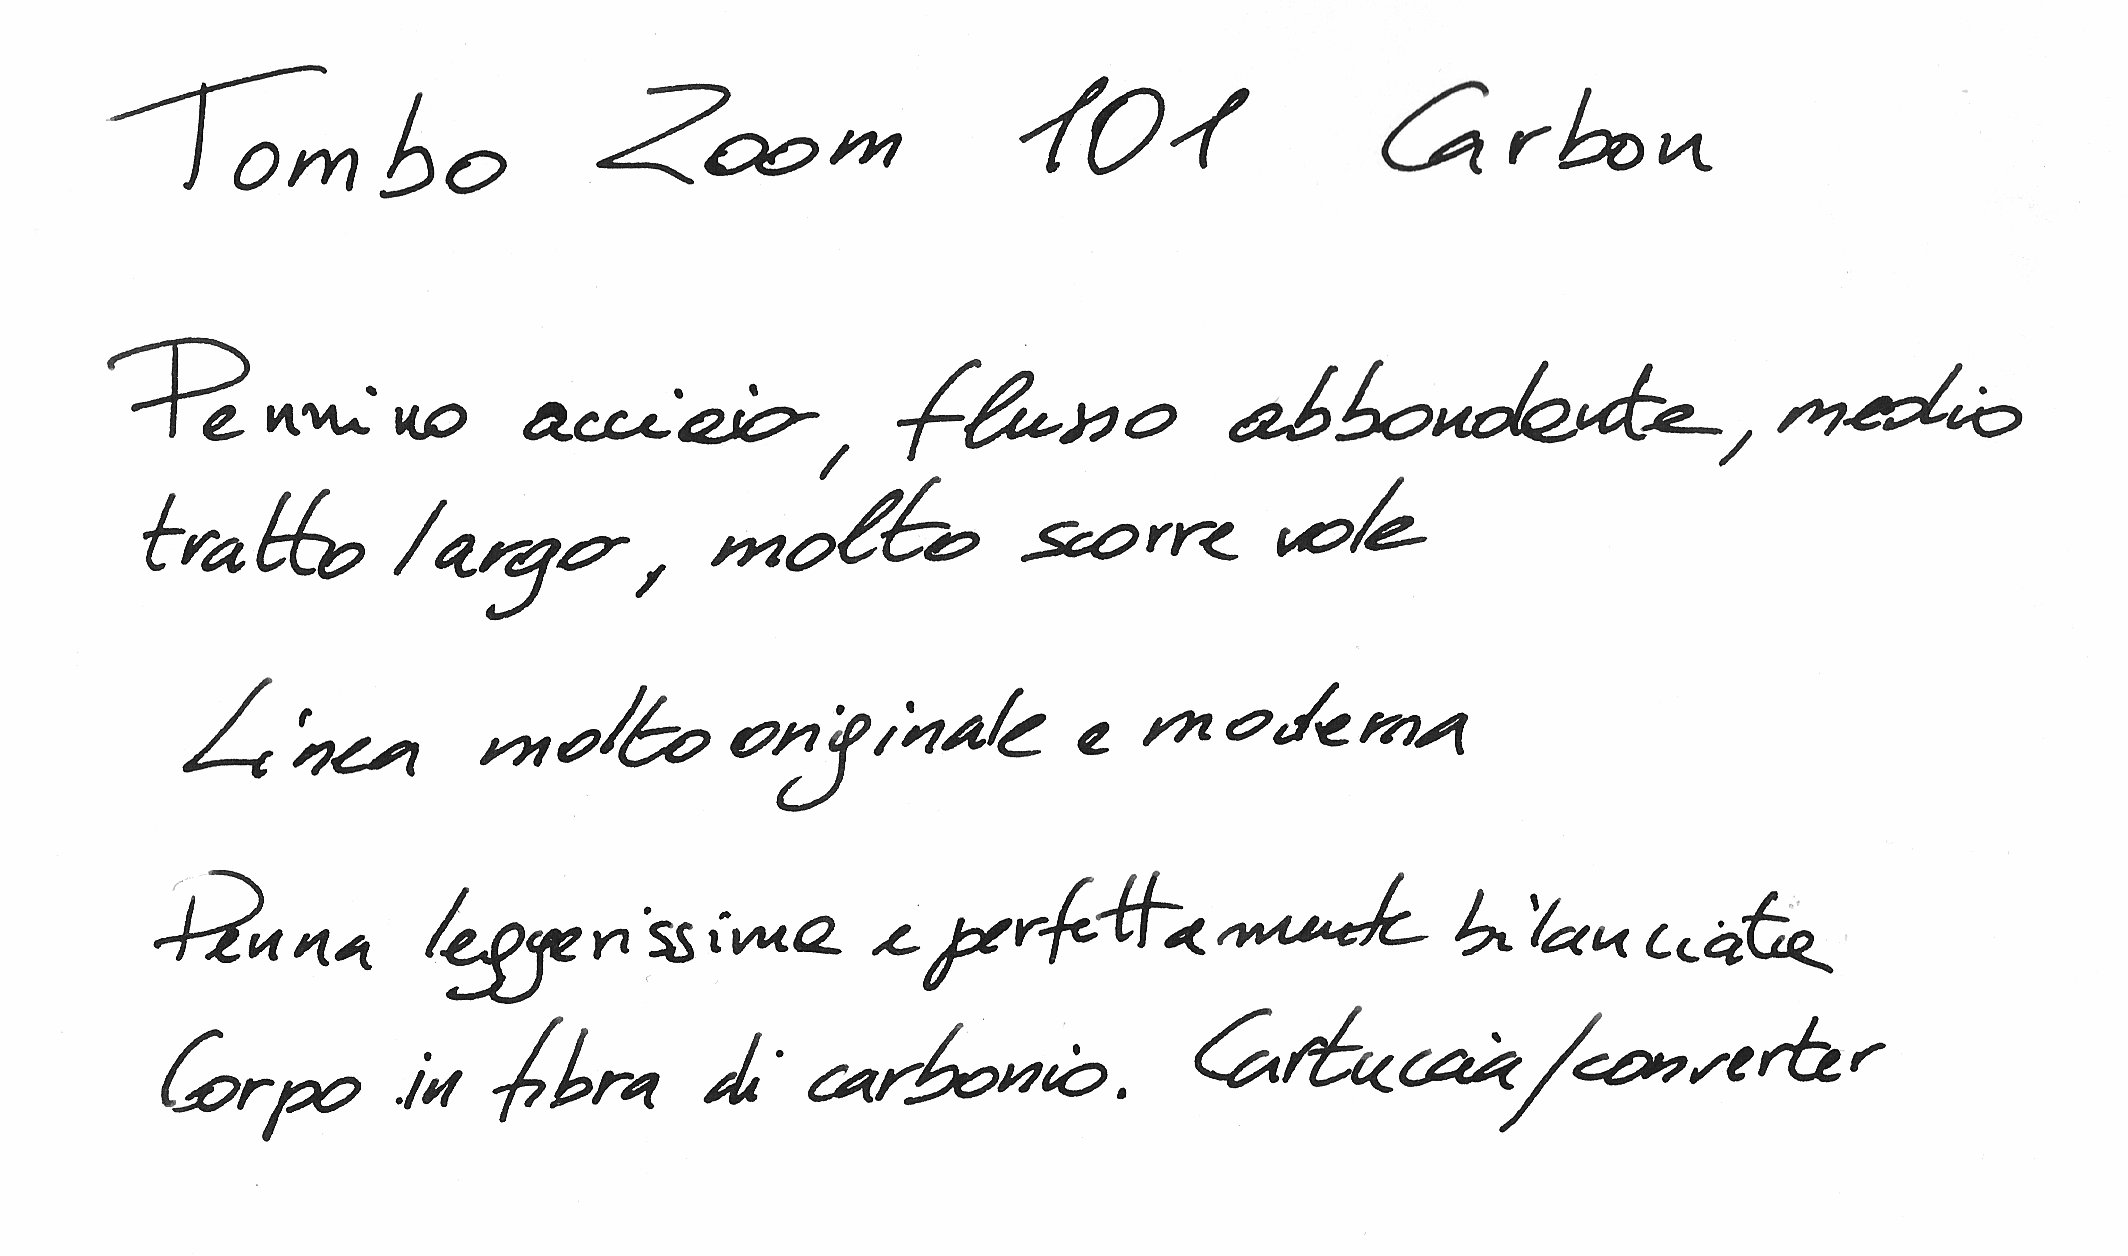 Tombo Zoom 101 Carbon
Pennino acciaio, flusso abbondante, medio
tratto largo, molto scorrevole
Linea molto originale e moderna
Penna leggerissima e perfettamente bilanciata
Corpo in fibra di carbonio. Cartuccia/converter